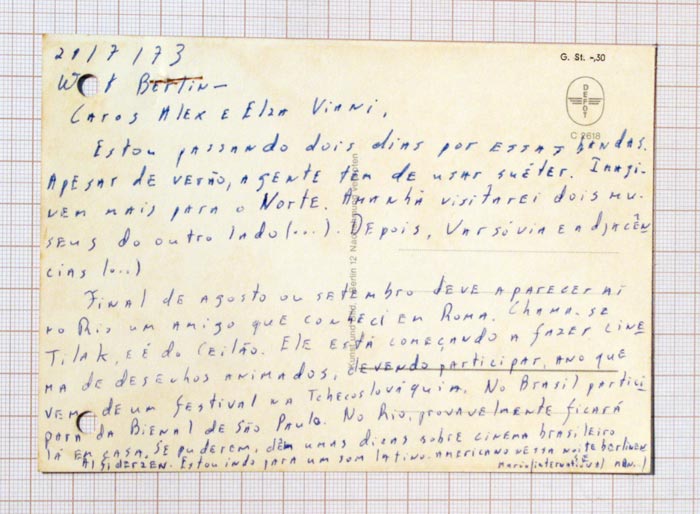 21/7/73
West Berlin -
Caros Alex e Elza Viani,
Estou passando dois dias por essas bandas.
Apesar de verão, a gente tem de usar suéter. Imagi-
nem mais para o Norte. Amanhã visitarei dois mu-
seus do outro lado (...). Depois, Varsóvia e adjacên-
cias (...)
Final de agosto ou setembro deve aparecer aí
no Rio um amigo que conheci em Roma. Chama-se
Tilak, e é do Ceilão. Ele está começando a fazer cine
ma de desenhos animados, devendo participar, ano que
vem, de um festival na Tchecoslováquia. No Brasil partici-
pará da Bienal de São Paulo. No Rio, provavelmente ficará
lá em casa. Se puderem, dêm umas dicas sobre cinema brasileiro
Estou indo para um som latino-americano nessa noite berlinen
se
Mario (international man...)
G. St. -,30
DEFOT
C 2618
Berlin 12 Nachdruck verboten